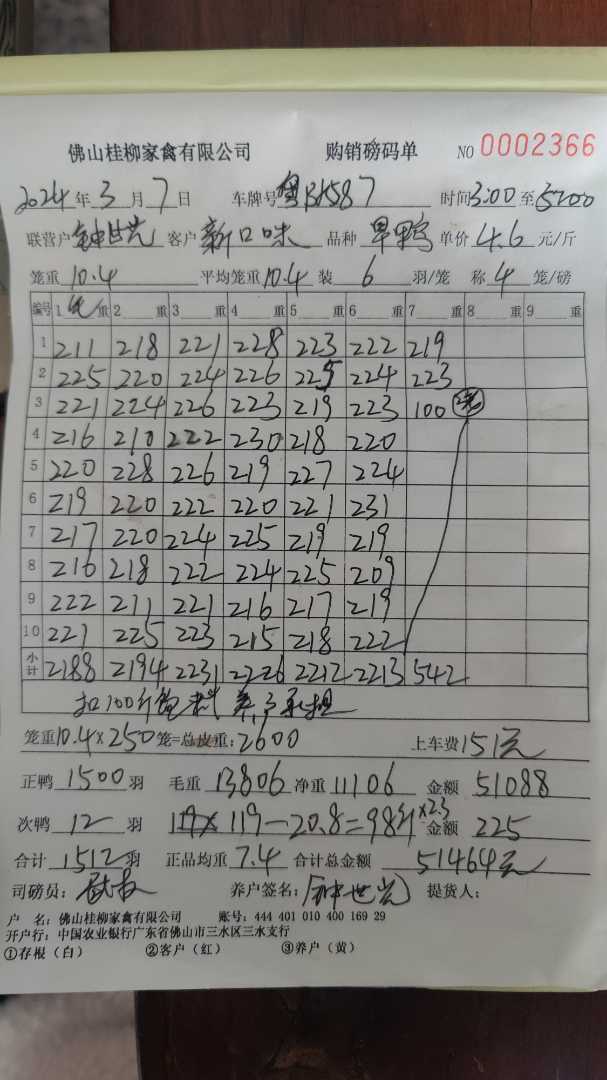 佛山桂柳家禽有限公司 购销磅码单 NO 0002366
2024年3月7日 车牌号粤BK587 时间3:00至5200
联营户钟世光 客户新口味 品种旱鸭 单价4.6元/斤
笼重10.4 平均笼重10.4装6羽/笼 称4笼/磅
编号 1 重 2 重 3 重 4 重 5 重 6 重 7 重 8 重 9 重
1 211 218 221 228 223 222 219
2 225 220 224 226 225 224 223
3 221 224 226 223 219 223 100
4 216 210 222 230 218 220
5 220 228 226 219 227 224
6 219 220 222 220 221 231
7 217 220 224 225 219 219
8 216 218 222 224 225 209
9 222 211 221 216 217 219
10 221 225 223 215 218 222
小计 2188 2194 2231 2226 2212 2213 542
扣100斤 养户承担
笼重10.4×250笼=总皮重:2600 上车费151元
正鸭1500羽 毛重13806净重11106 金额51088
次鸭12羽 119-20.8=98斤×2.3金额225
合计1512羽 正品均重7.4 合计总金额51464元
司磅员: 养户签名:钟世光 提货人:
户 名:佛山桂柳家禽有限公司 账号:444 401 010 400 169 29
开户行:中国农业银行广东省佛山市三水区三水支行
①存根(白) ②客户(红) ③养户(黄)